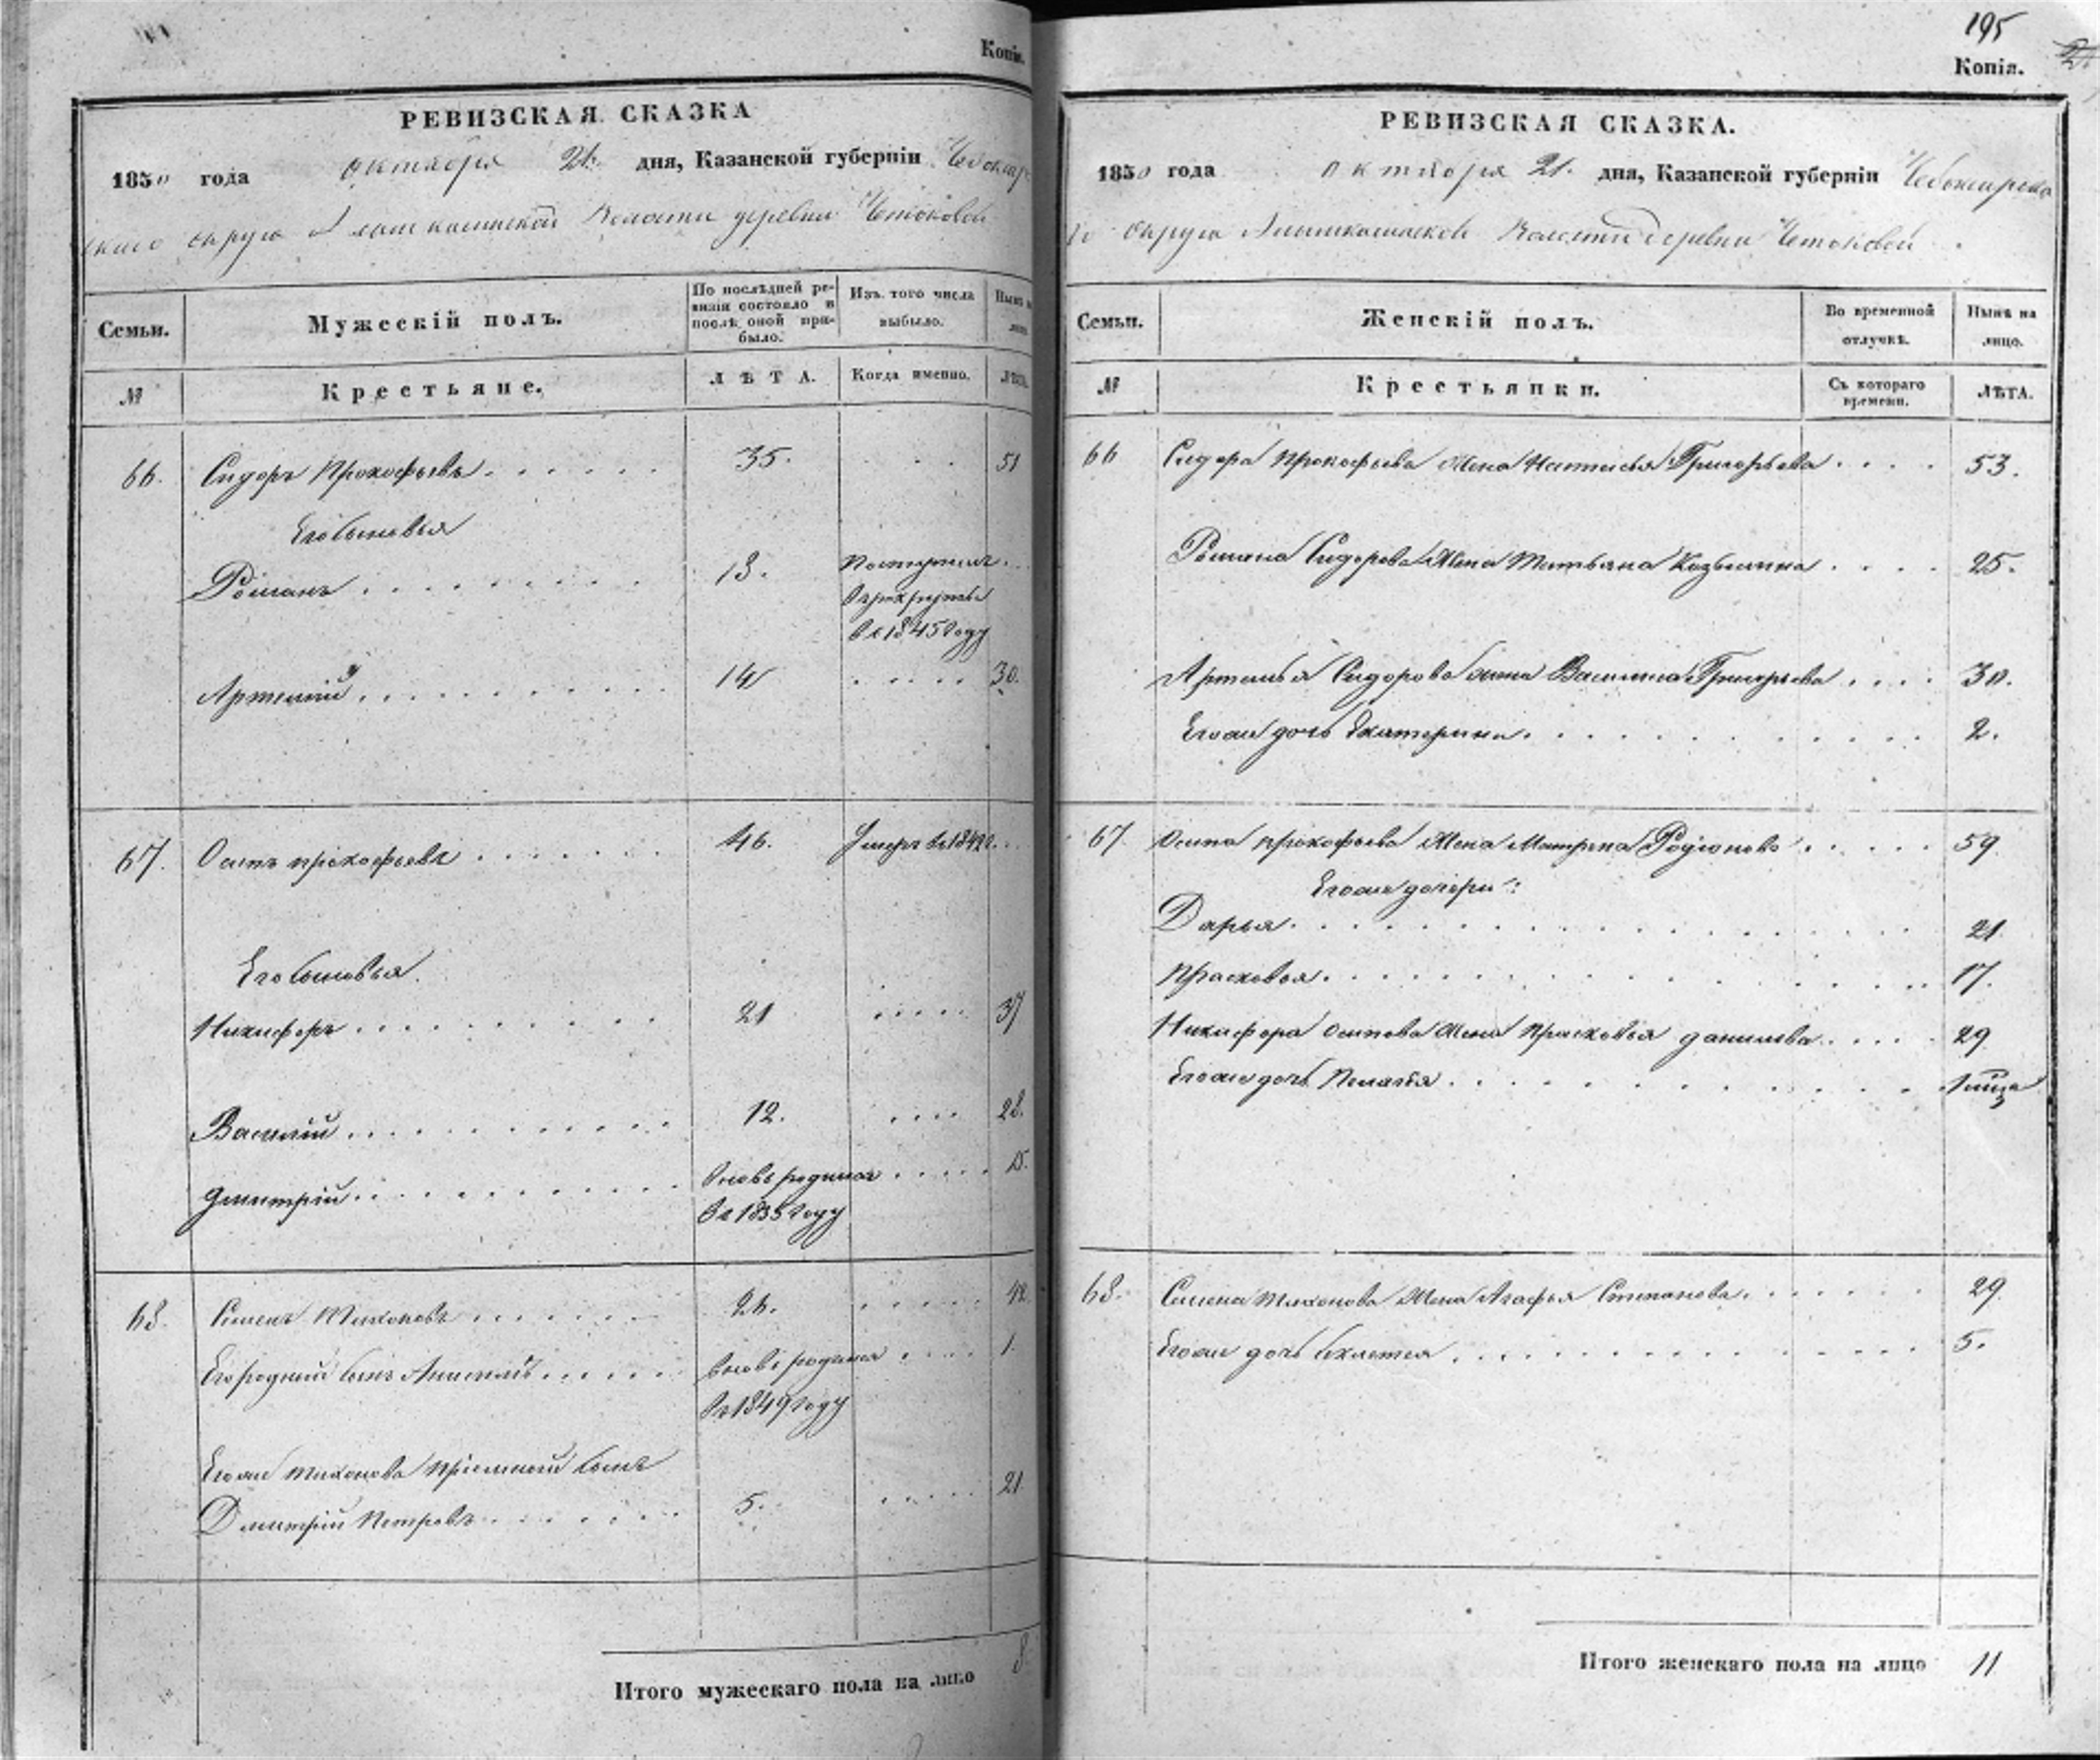 Копія.
РЕВИЗСКАЯ СКАЗКА
1850 года октября 21. дня, Казанской губерніи Чебоксар
скаго округа Алымкасинской Волости деревни
Семьи. Мужескій полъ. По послѣдней ре-визіи состояло и послѣ оной при-было. Изъ того числа выбыло. Нынѣ на лицо.
№ Крестьяне. ЛѢТА. Когда именно. ЛѢТА.
66. Сидоръ Прокофьевъ 35. 51
Его сыновья
Романъ 18. Поступилъ
в рекруты
въ 1845 году
Артемій 14 30.
67. Осипъ прокофьевъ 46. Умеръ въ
Его сыновья
Никифоръ 21 37
Василій 12. 28.
Дмитрій вновь родился 15.
въ 1835 году
68. Семенъ Тихоновъ 26. 42.
Его родной сынъ вновь родился 1.
въ 1849 году
Егоже Тихонова пріемной сынъ
Дмитрій Петровъ 5. 21
Итого мужескаго пола на лицо 8
195
Копія.
РЕВИЗСКАЯ СКАЗКА.
1850 года октября 21. дня, Казанской губерніи Чебоксарска
го округа Алымкасинской Волости деревни
Семьи. Женскій полъ. Во временной отлучкѣ. Нынѣ на лицо.
№ Крестьянки. Съ котораго времени. ЛѢТА.
66 Сидора Прокофьева жена Настасья Григорьева 53.
Романа Сидорова жена Татьяна Козьмина 25.
Артемья Сидорова жена Василиса Григорьева 30.
Егоже дочь Екатерина 2.
67. Осипа прокофьева жена Матрена Родіонова 59
Егоже дочери:
Дарья 21
Прасковья 17.
Никифора Осипова жена Прасковья данилова 29
Егоже дочь Пелагѣя
68. Семена Тихонова жена Агафья Степанова 29
Егоже дочь 5.
Итого женскаго пола на лицо 11